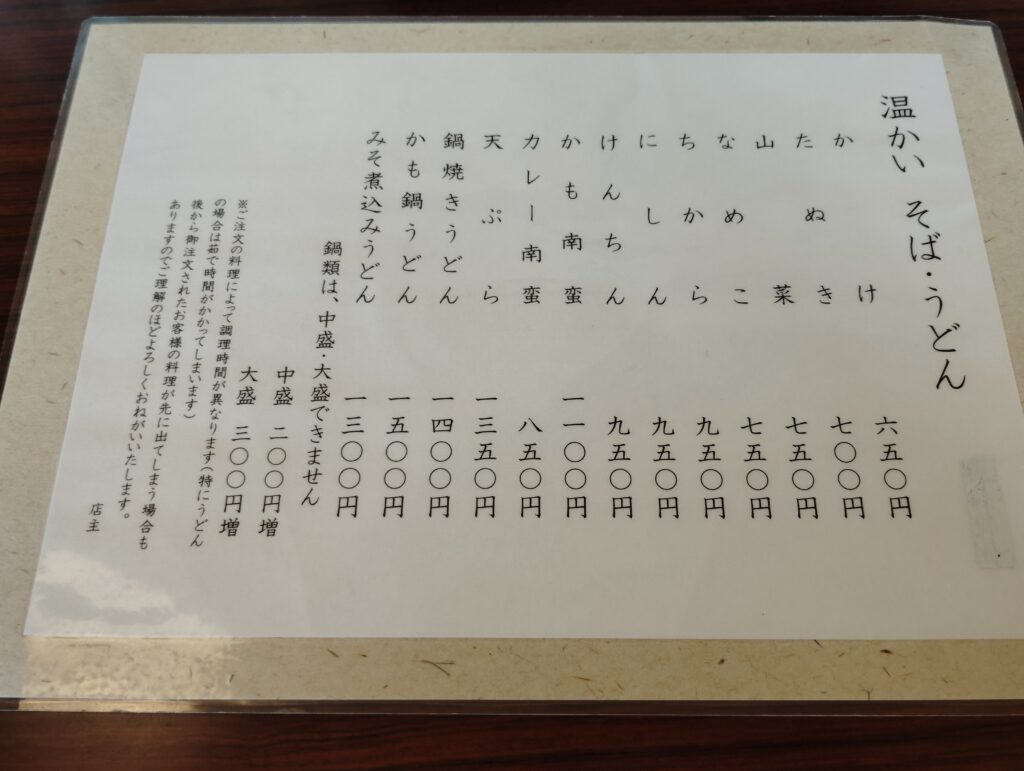 温かい そば・うどん
かけ 六五〇円
たぬき 七〇〇円
山菜 七五〇円
なめこ 七五〇円
ちから 九五〇円
にしん 九五〇円
けんちん 九五〇円
かも南蛮 一一〇〇円
カレー南蛮 八五〇円
天ぷら 一三五〇円
鍋焼きうどん 一四〇〇円
かも鍋うどん 一五〇〇円
みそ煮込みうどん 一三〇〇円
鍋類は、中盛・大盛できません
中盛 二〇〇円増
大盛 三〇〇円増
※ご注文の料理によって調理時間が異なります(特にうどん
の場合は茹で時間がかかってしまいます)
後から御注文されたお客様の料理が先に出てしまう場合も
ありますのでご理解のほどよろしくおねがいいたします。
店主